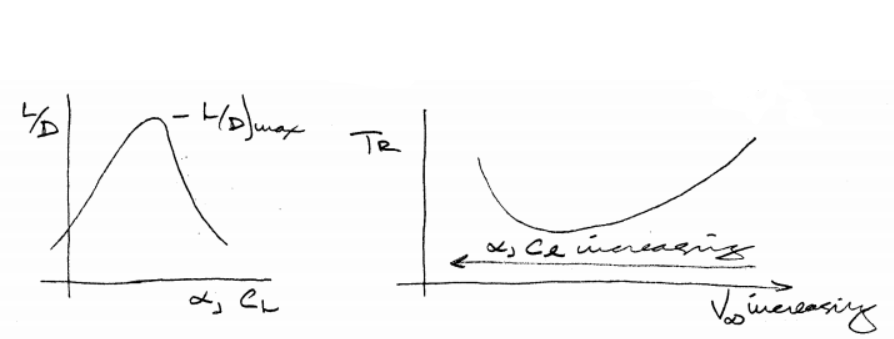 L/D
L/D)max
α, CL
TR
α, Cl increasing
V∞ increasing